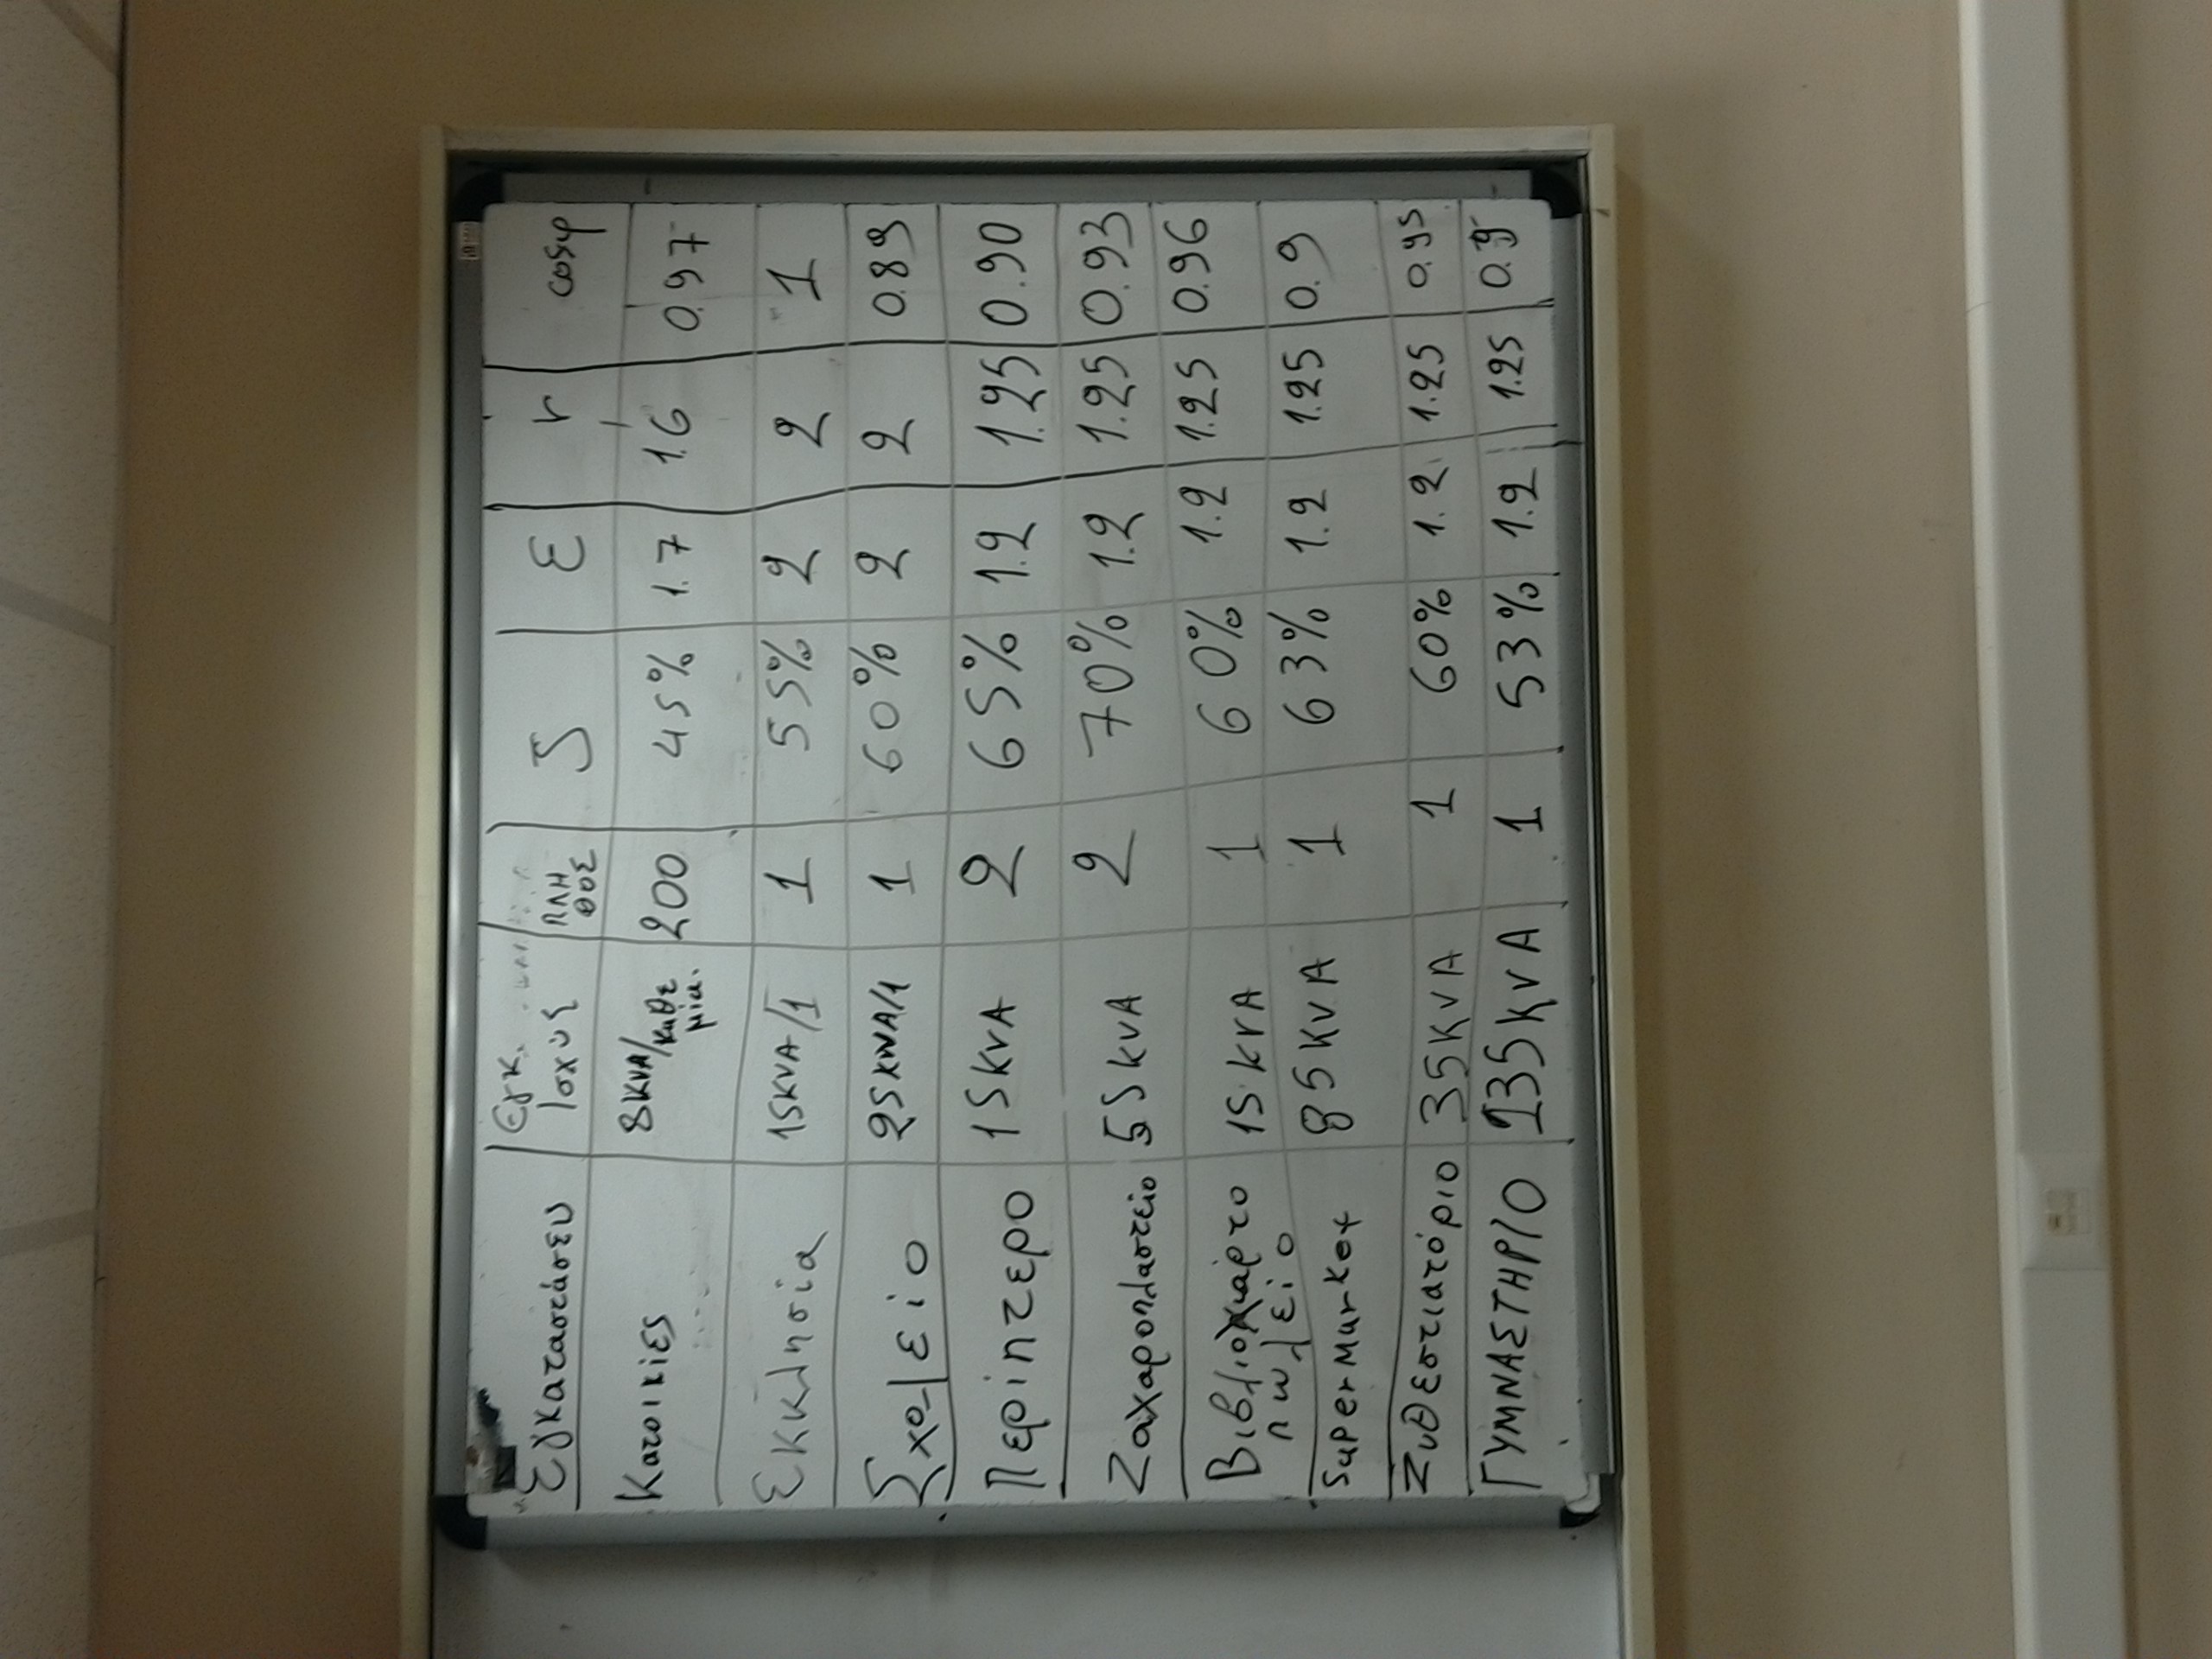 Εγκαταστάσεις Εγκ. Ισχύς ΠΛΗΘΟΣ ζ ε r cosφ
Κατοικίες 8KVA/καθε μία. 200 45% 1.7 1.6 0.97
Εκκλησία 15KVA/1 1 55% 2 2 1
Σχολείο 25KWA/1 1 60% 2 2 0.89
Περίπτερο 15KVA 2 65% 1.2 1.25 0.90
Ζαχαροπλαστείο 55KVA 2 70% 1.2 1.25 0.93
Βιβλιοχάρτο 15KVA 1 60% 1.2 1.25 0.96
πωλείο
SuperMarket 85KVA 1 63% 1.2 1.25 0.9
Ζυθεστιατόριο 35KVA 1 60% 1.2 1.25 0.95
ΓΥΜΝΑΣΤΗΡΙΟ 135KVA 1 53% 1.2 1.25 0.9